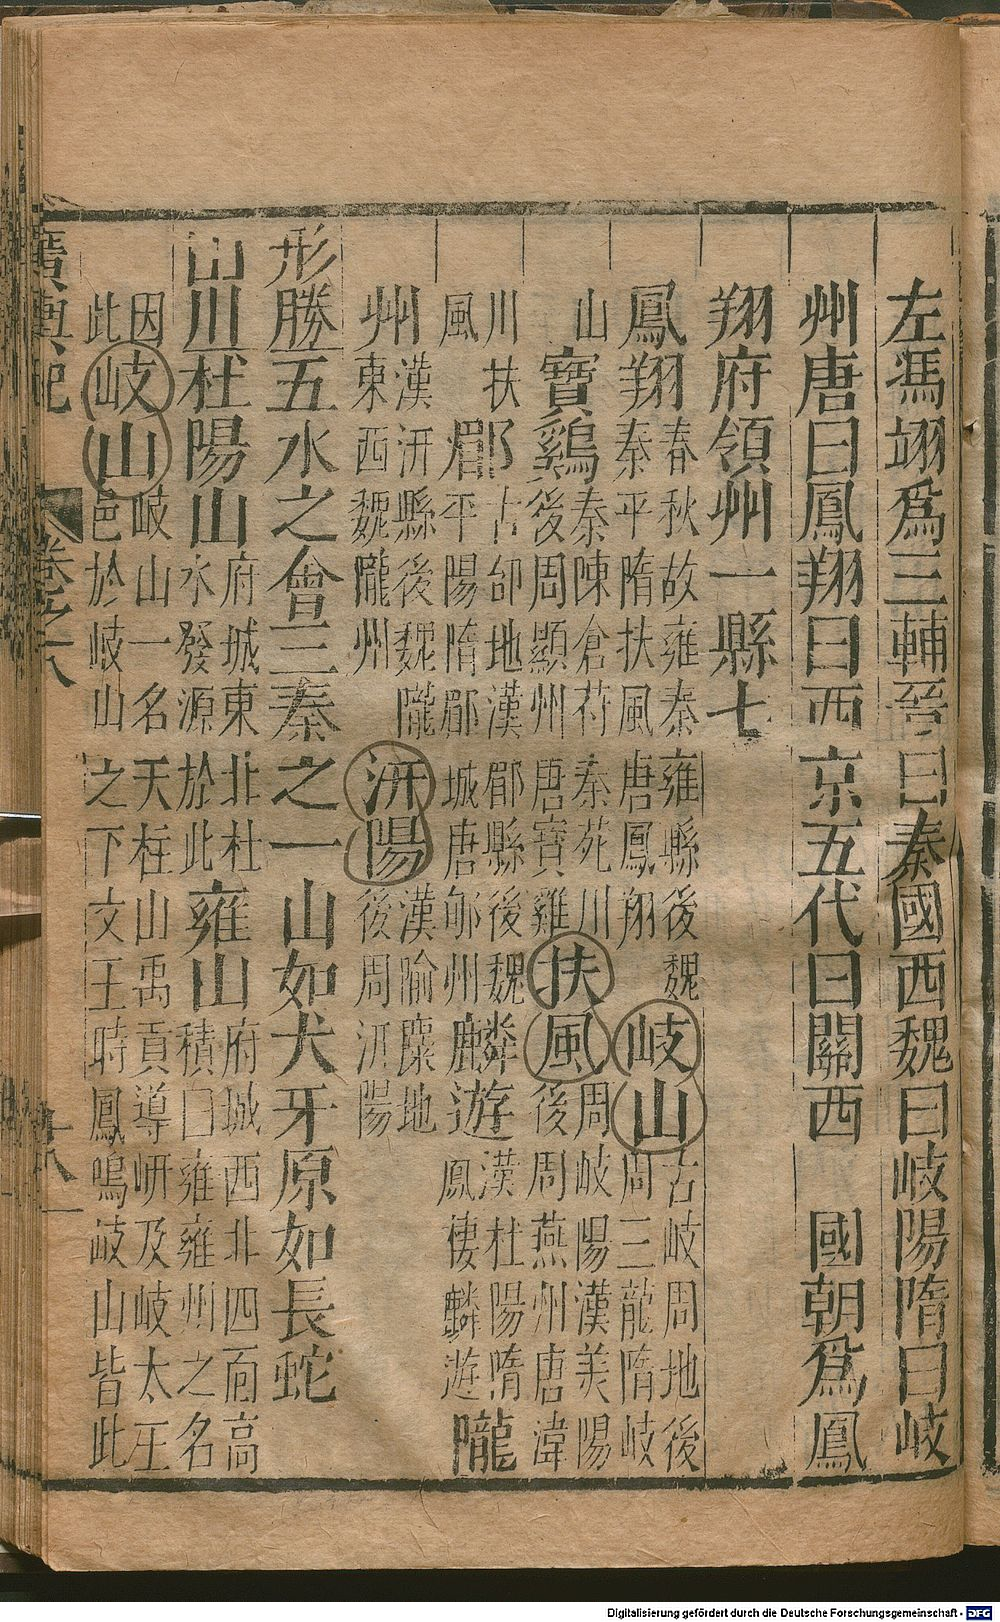 左馮翊爲三輔晉曰秦國西魏曰岐陽隋曰岐
州唐曰鳳翔曰西京五代曰關西 國朝爲鳳
翔府領州一縣七
鳳翔 春秋故雍秦雍縣後魏
秦平隋扶風唐鳳翔
岐山 古岐周地後
周三龍隋岐
山
寶鷄 秦陳倉苻秦苑川
後周顯州唐寶雞
扶風 周岐陽漢美陽
後周燕州唐湋
川扶
風
郿 古邰地漢郿縣後魏
平陽隋郿城唐郇州
麟遊 漢杜陽隋
鳳棲麟遊
隴
州 漢汧縣後魏隴
東西魏隴州
汧陽 漢隃麋地
後周汧陽
形勝 五水之會三秦之一山如犬牙原如長蛇
山川 杜陽山 府城東北杜
水發源於此
雍山 府城西北四面高
積曰雍雍州之名
因
此
岐山 岐山一名天柱山禹貢導岍及岐太王
邑於岐山之下文王時鳳鳴岐山皆此
廣輿記
卷之八
十八
Digitalisierung gefördert durch die Deutsche Forschungsgemeinschaft - DFG